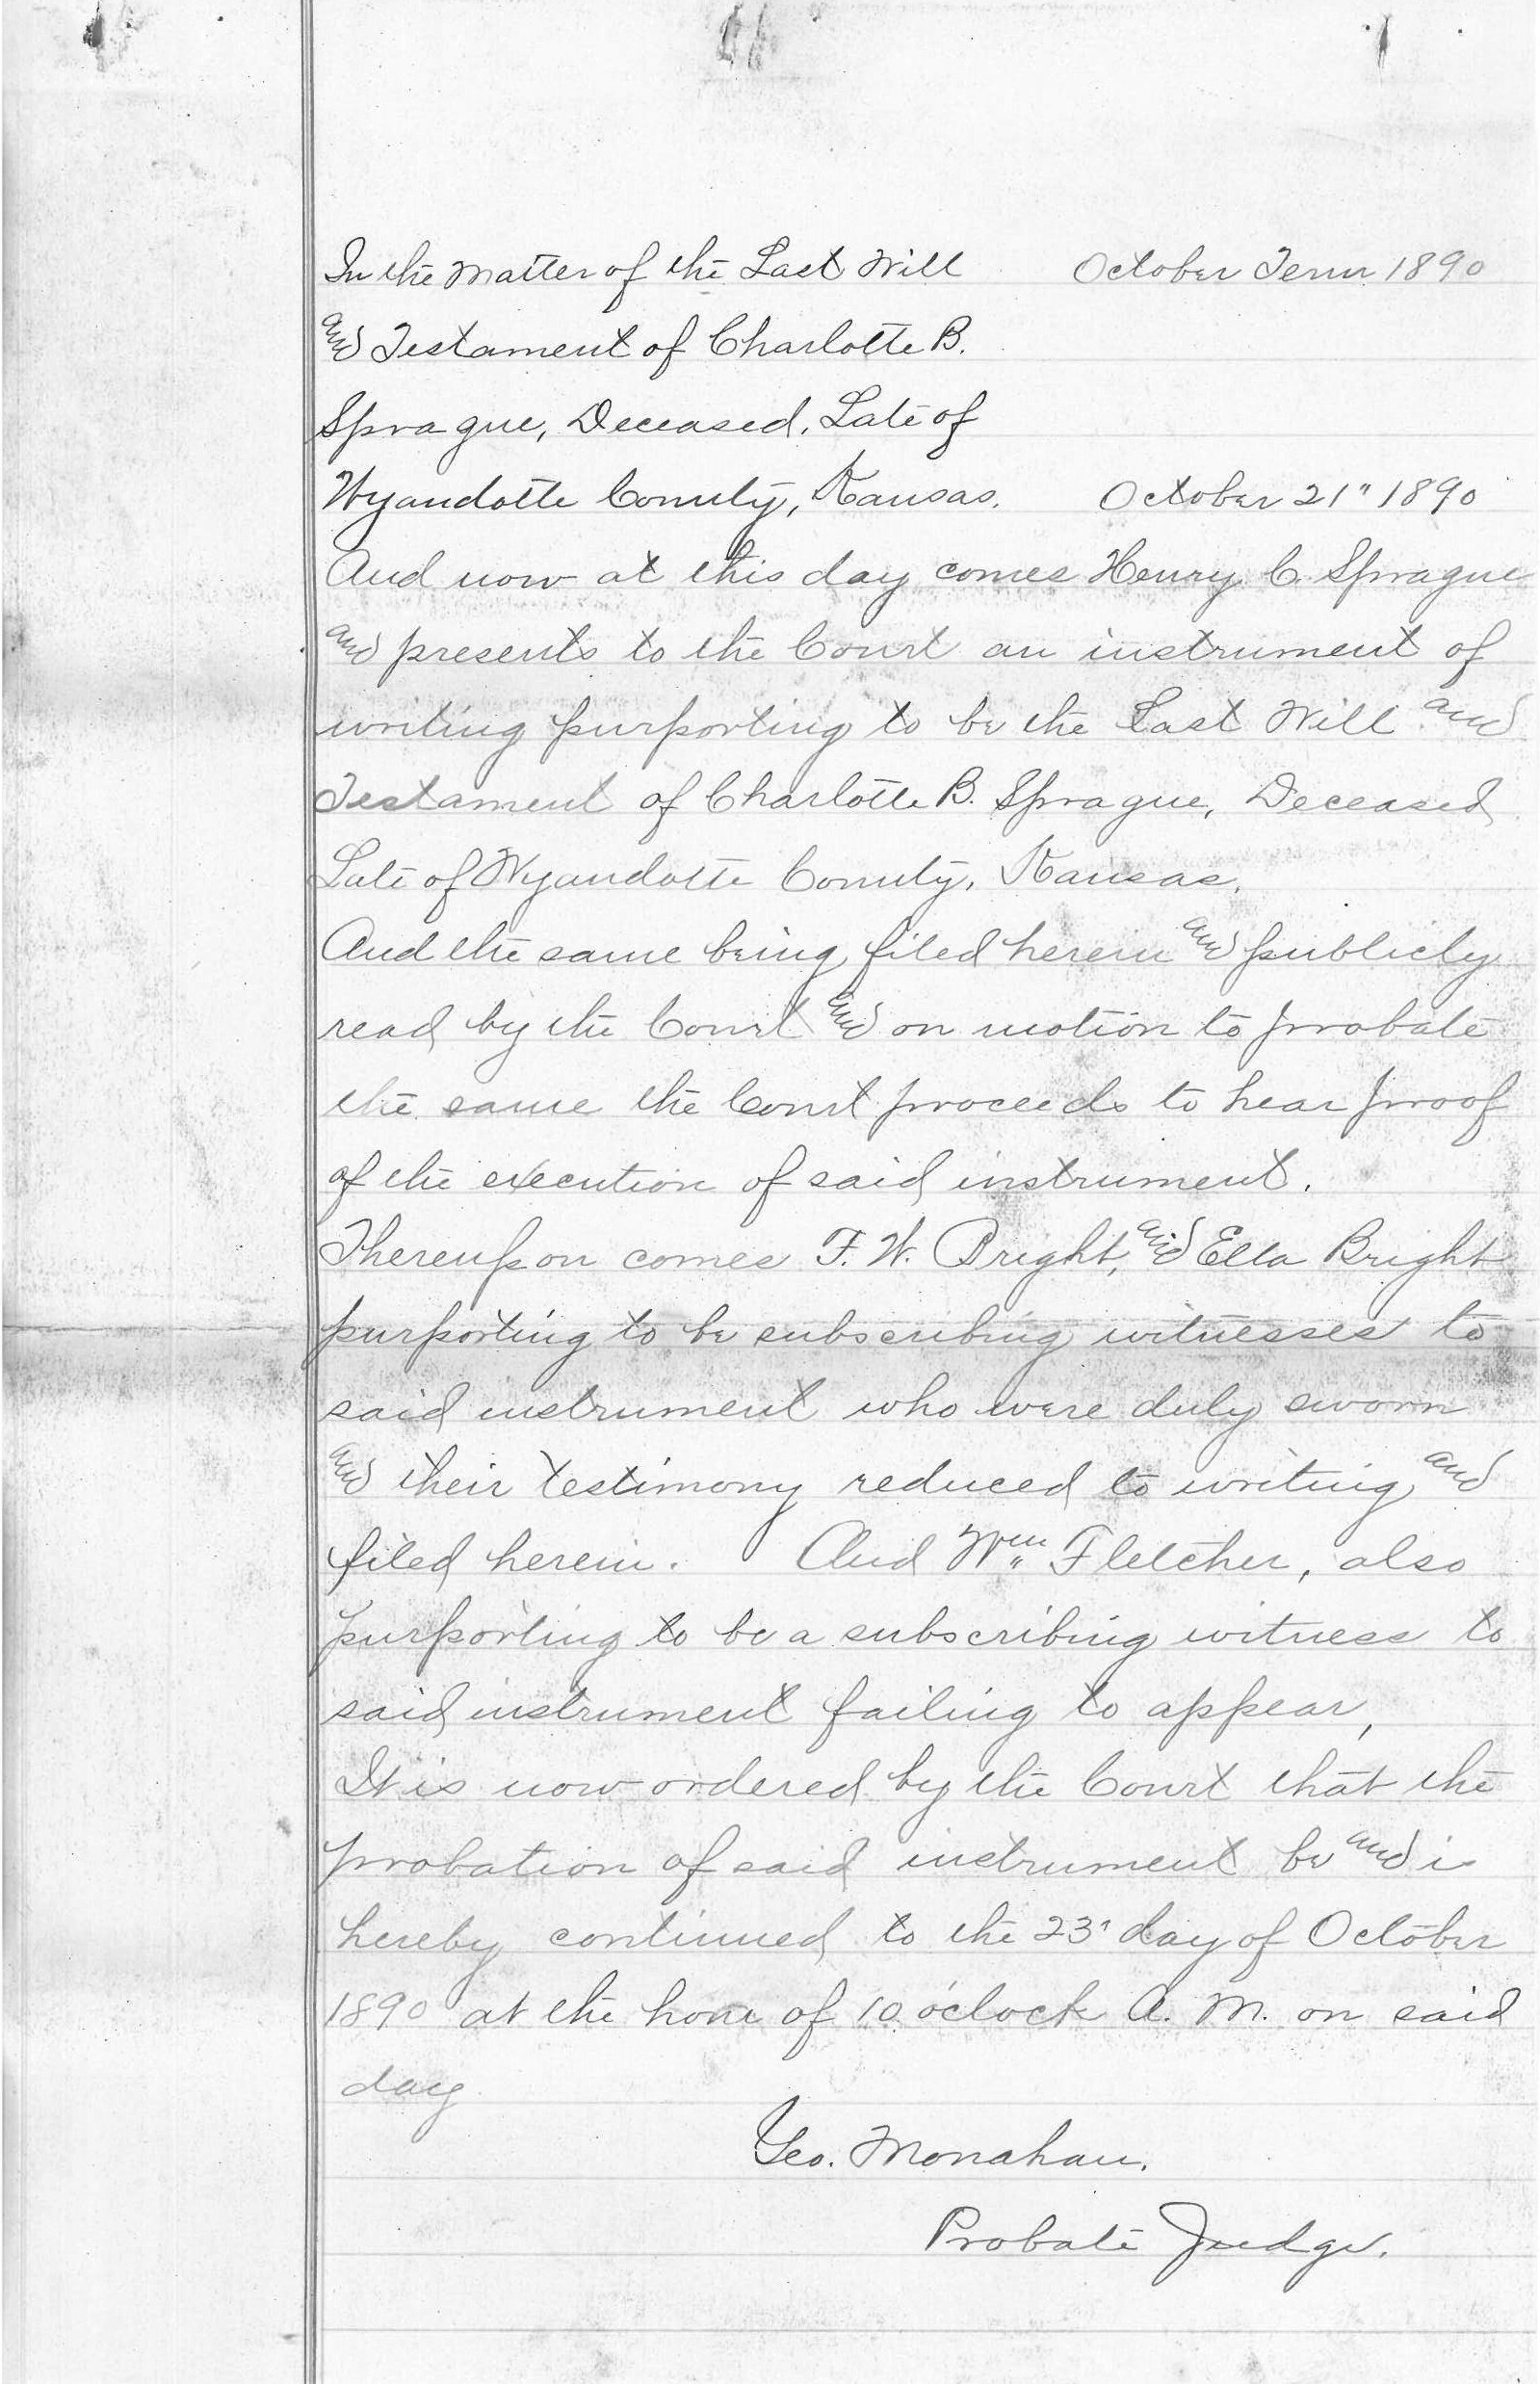 In the Matter of the Last Will October Term 1890
and Testament of Charlotte B.
Sprague, Deceased, Late of
Wyandotte County, Kansas. October 21" 1890
And now at this day comes Henry C. Sprague
and presents to the Court an instrument of
writing purporting to be the Last Will and
Testament of Charlotte B. Sprague, Deceased
Late of Wyandotte County, Kansas.
And the same being filed herein and publicly
read by the Court and on motion to probate
the same the Court proceeds to hear proof
of the execution of said instrument.
Thereupon comes F. W. Bright, and Ella Bright
purporting to be subscribing witnesses to
said instrument who were duly sworn
and their testimony reduced to writing and
filed herein. And Wm Fletcher, also
purporting to be a subscribing witness to
said instrument failing to appear,
It is now ordered by the Court that the
probation of said instrument be and is
hereby continued to the 23" day of October
1890 at the hour of 10 o'clock A. M. on said
day
Geo. Monahan.
Probate Judge.